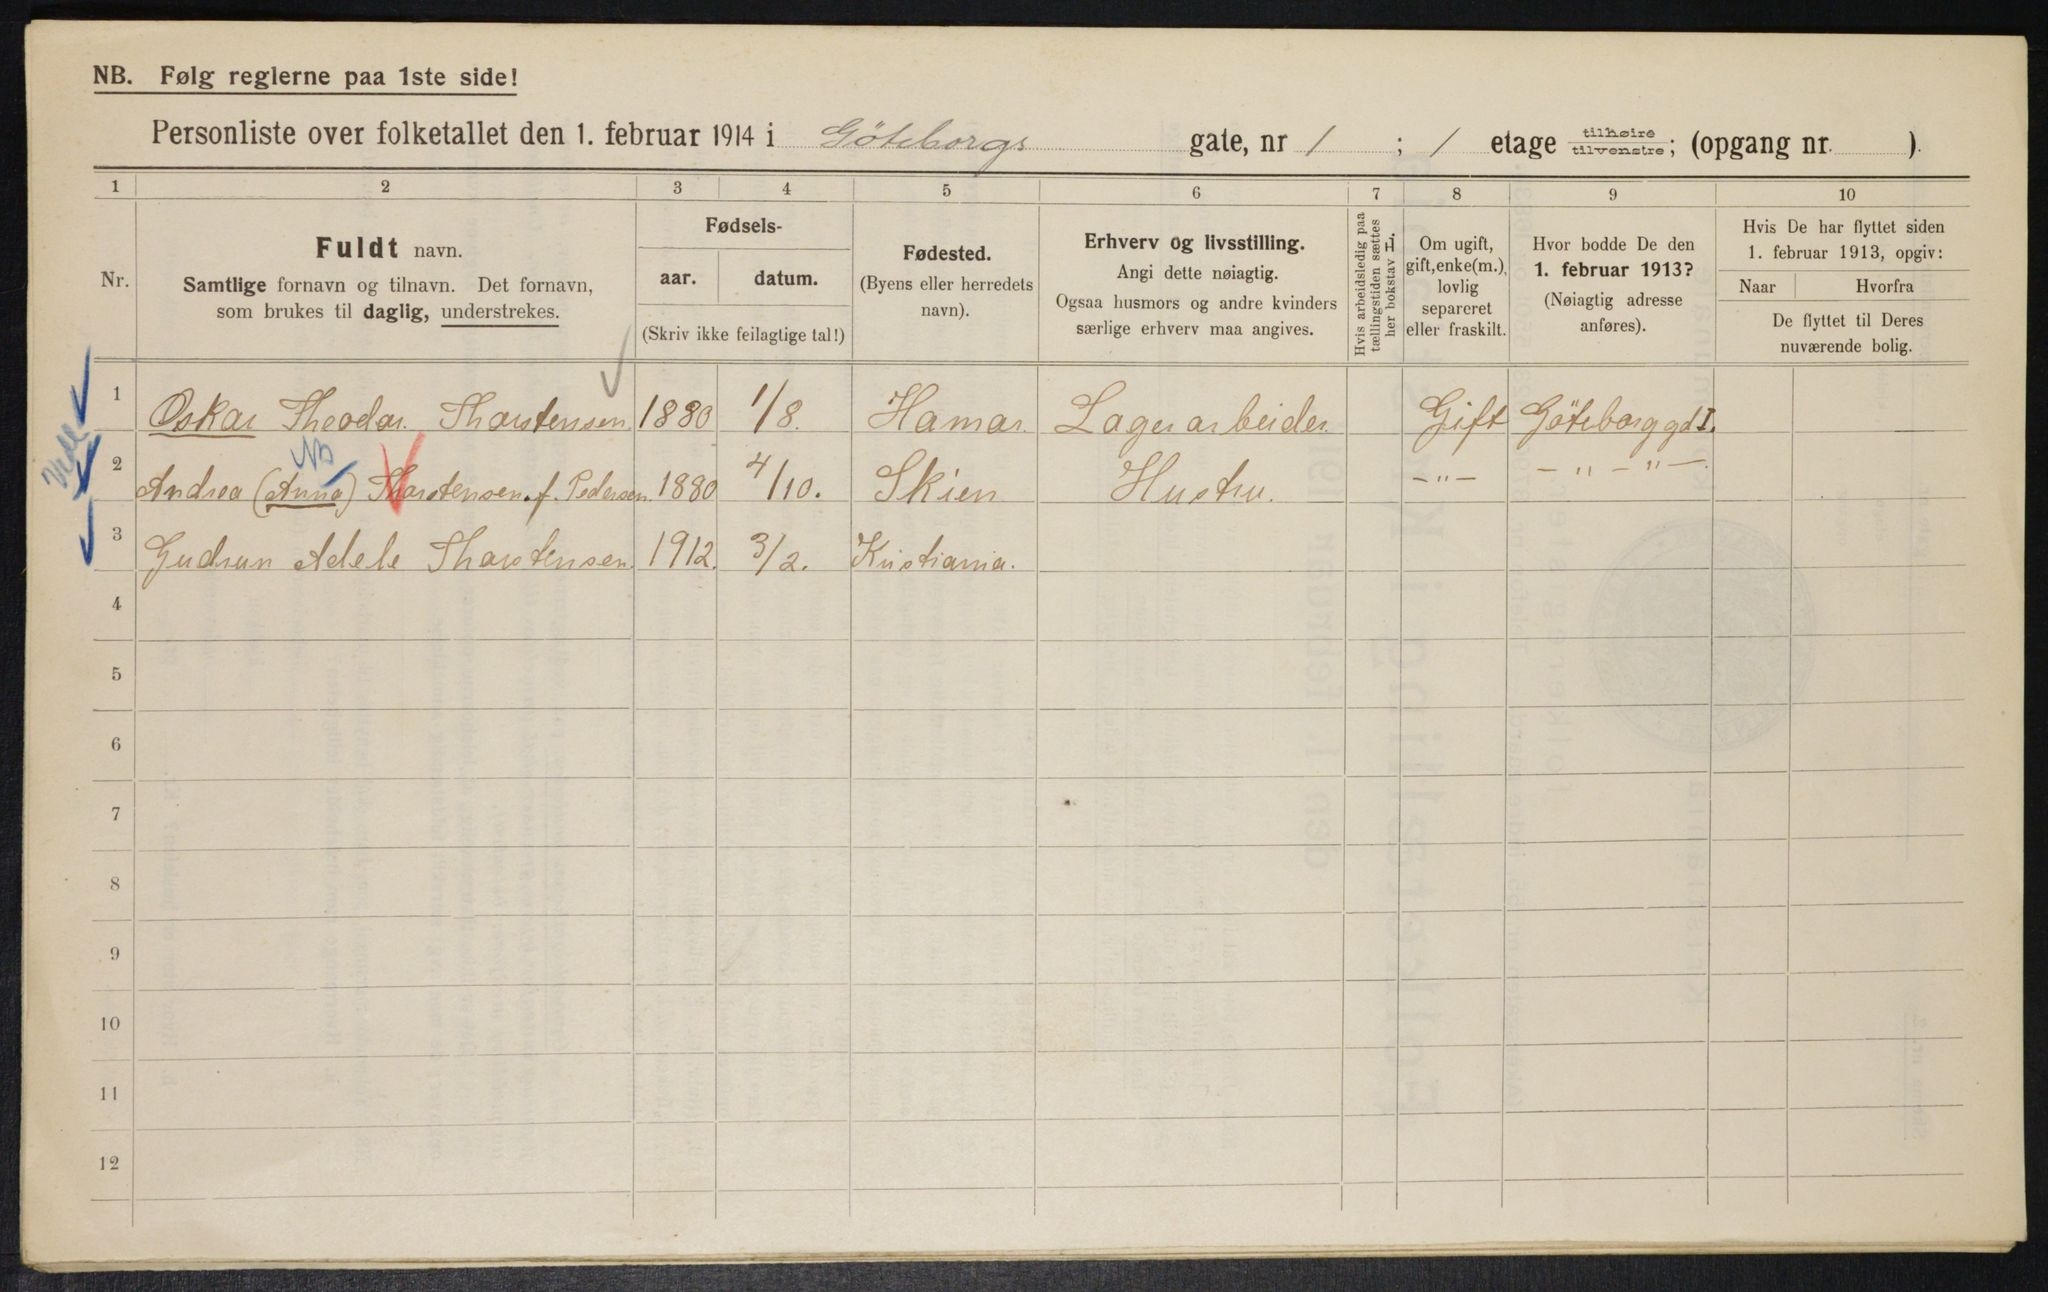 NB. Følg reglerne paa 1ste side!
Personliste over folketallet den 1. februar 1914 i Göteborgs gate, nr 1 ; 1 etage tilhøire tilvenstre; (opgang nr. ).
1 2 3 4 5 6 7 8 9 10
Nr.
Fuldt navn.
Samtlige fornavn og tilnavn. Det fornavn,
som brukes til daglig, understrekes.
Fødsels-
aar. datum.
(Skriv ikke feilagtige tal!)
Fødested.
(Byens eller herredets
navn).
Erhverv og livsstilling.
Angi dette nøiagtig.
Ogsaa husmors og andre kvinders
særlige erhverv maa angives.
Hvis arbeidsledig paa
tællingstiden sættes
her bokstav L.
Om ugift,
gift, enke(m.),
lovlig
separeret
eller fraskilt.
Hvor bodde De den
1. februar 1913?
(Nøiagtig adresse
anføres).
Hvis De har flyttet siden
1. februar 1913, opgiv:
Naar Hvorfra
De flyttet til Deres
nuværende bolig.
1 Oskar Theodor Thorstensen 1880 1/8. Hamar. Lagerarbeider. Gift Göteborg gd 1.
NB
2 Andrea (Anna) Thorstensen. f. Pedersen. 1880 4/10. Skien Hustru. -"- -"-"-
3 Gudrun Adele Thorstensen. 1912. 3/2. Kristiania.
4
5
6
7
8
9
10
11
12